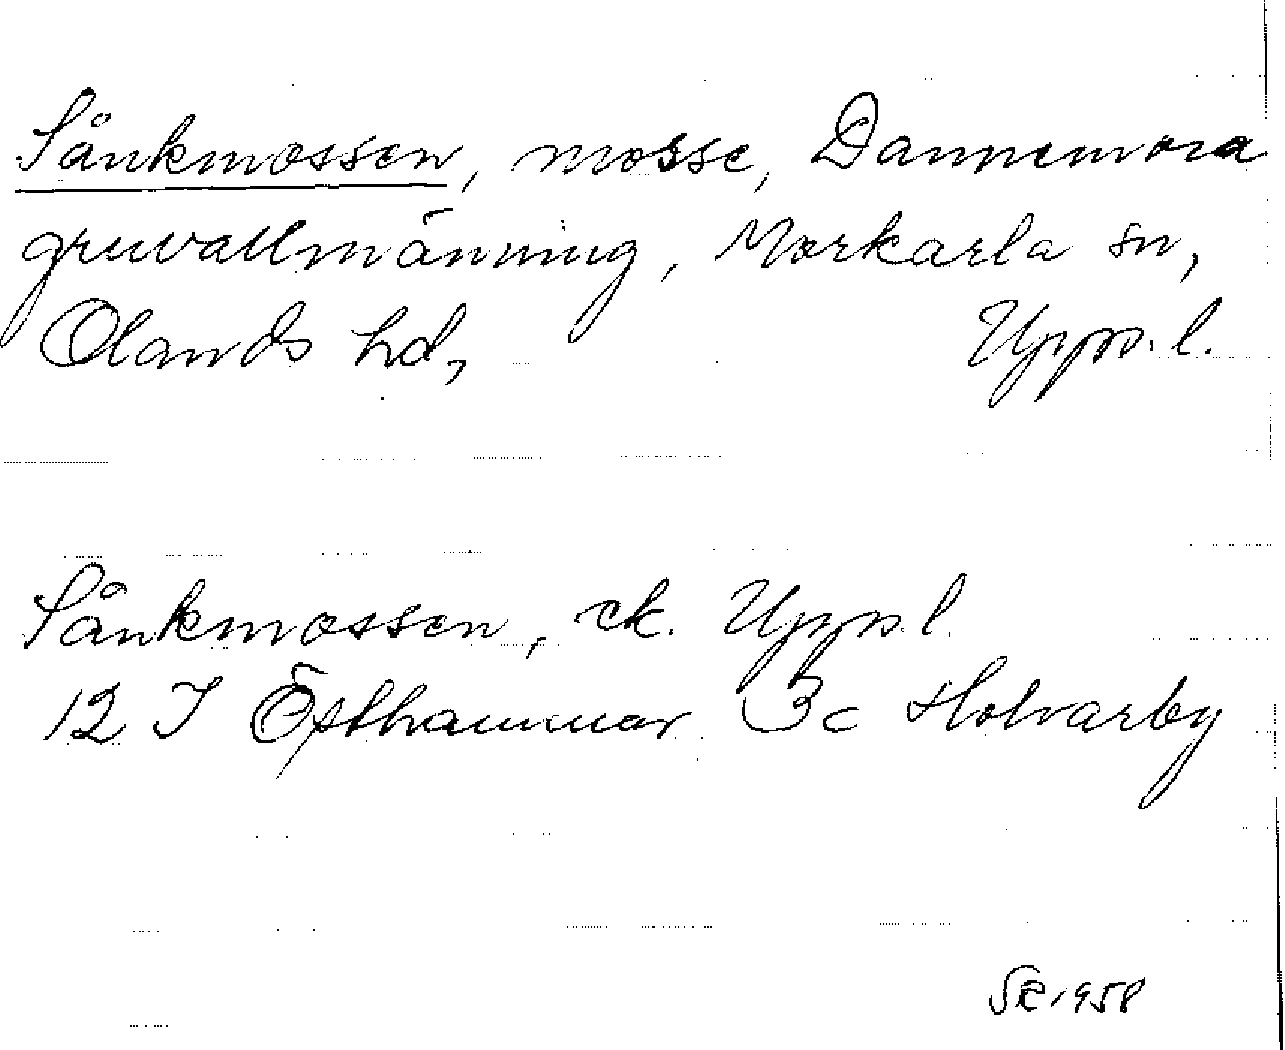 Sånkmossen, mosse, Dannemora
gruvallmänning, Morkarla sn,
Olands hd, Uppl.
Sånkmossen, ek. Uppl.
12 I Östhammar 3c Holvarby
SE 1958